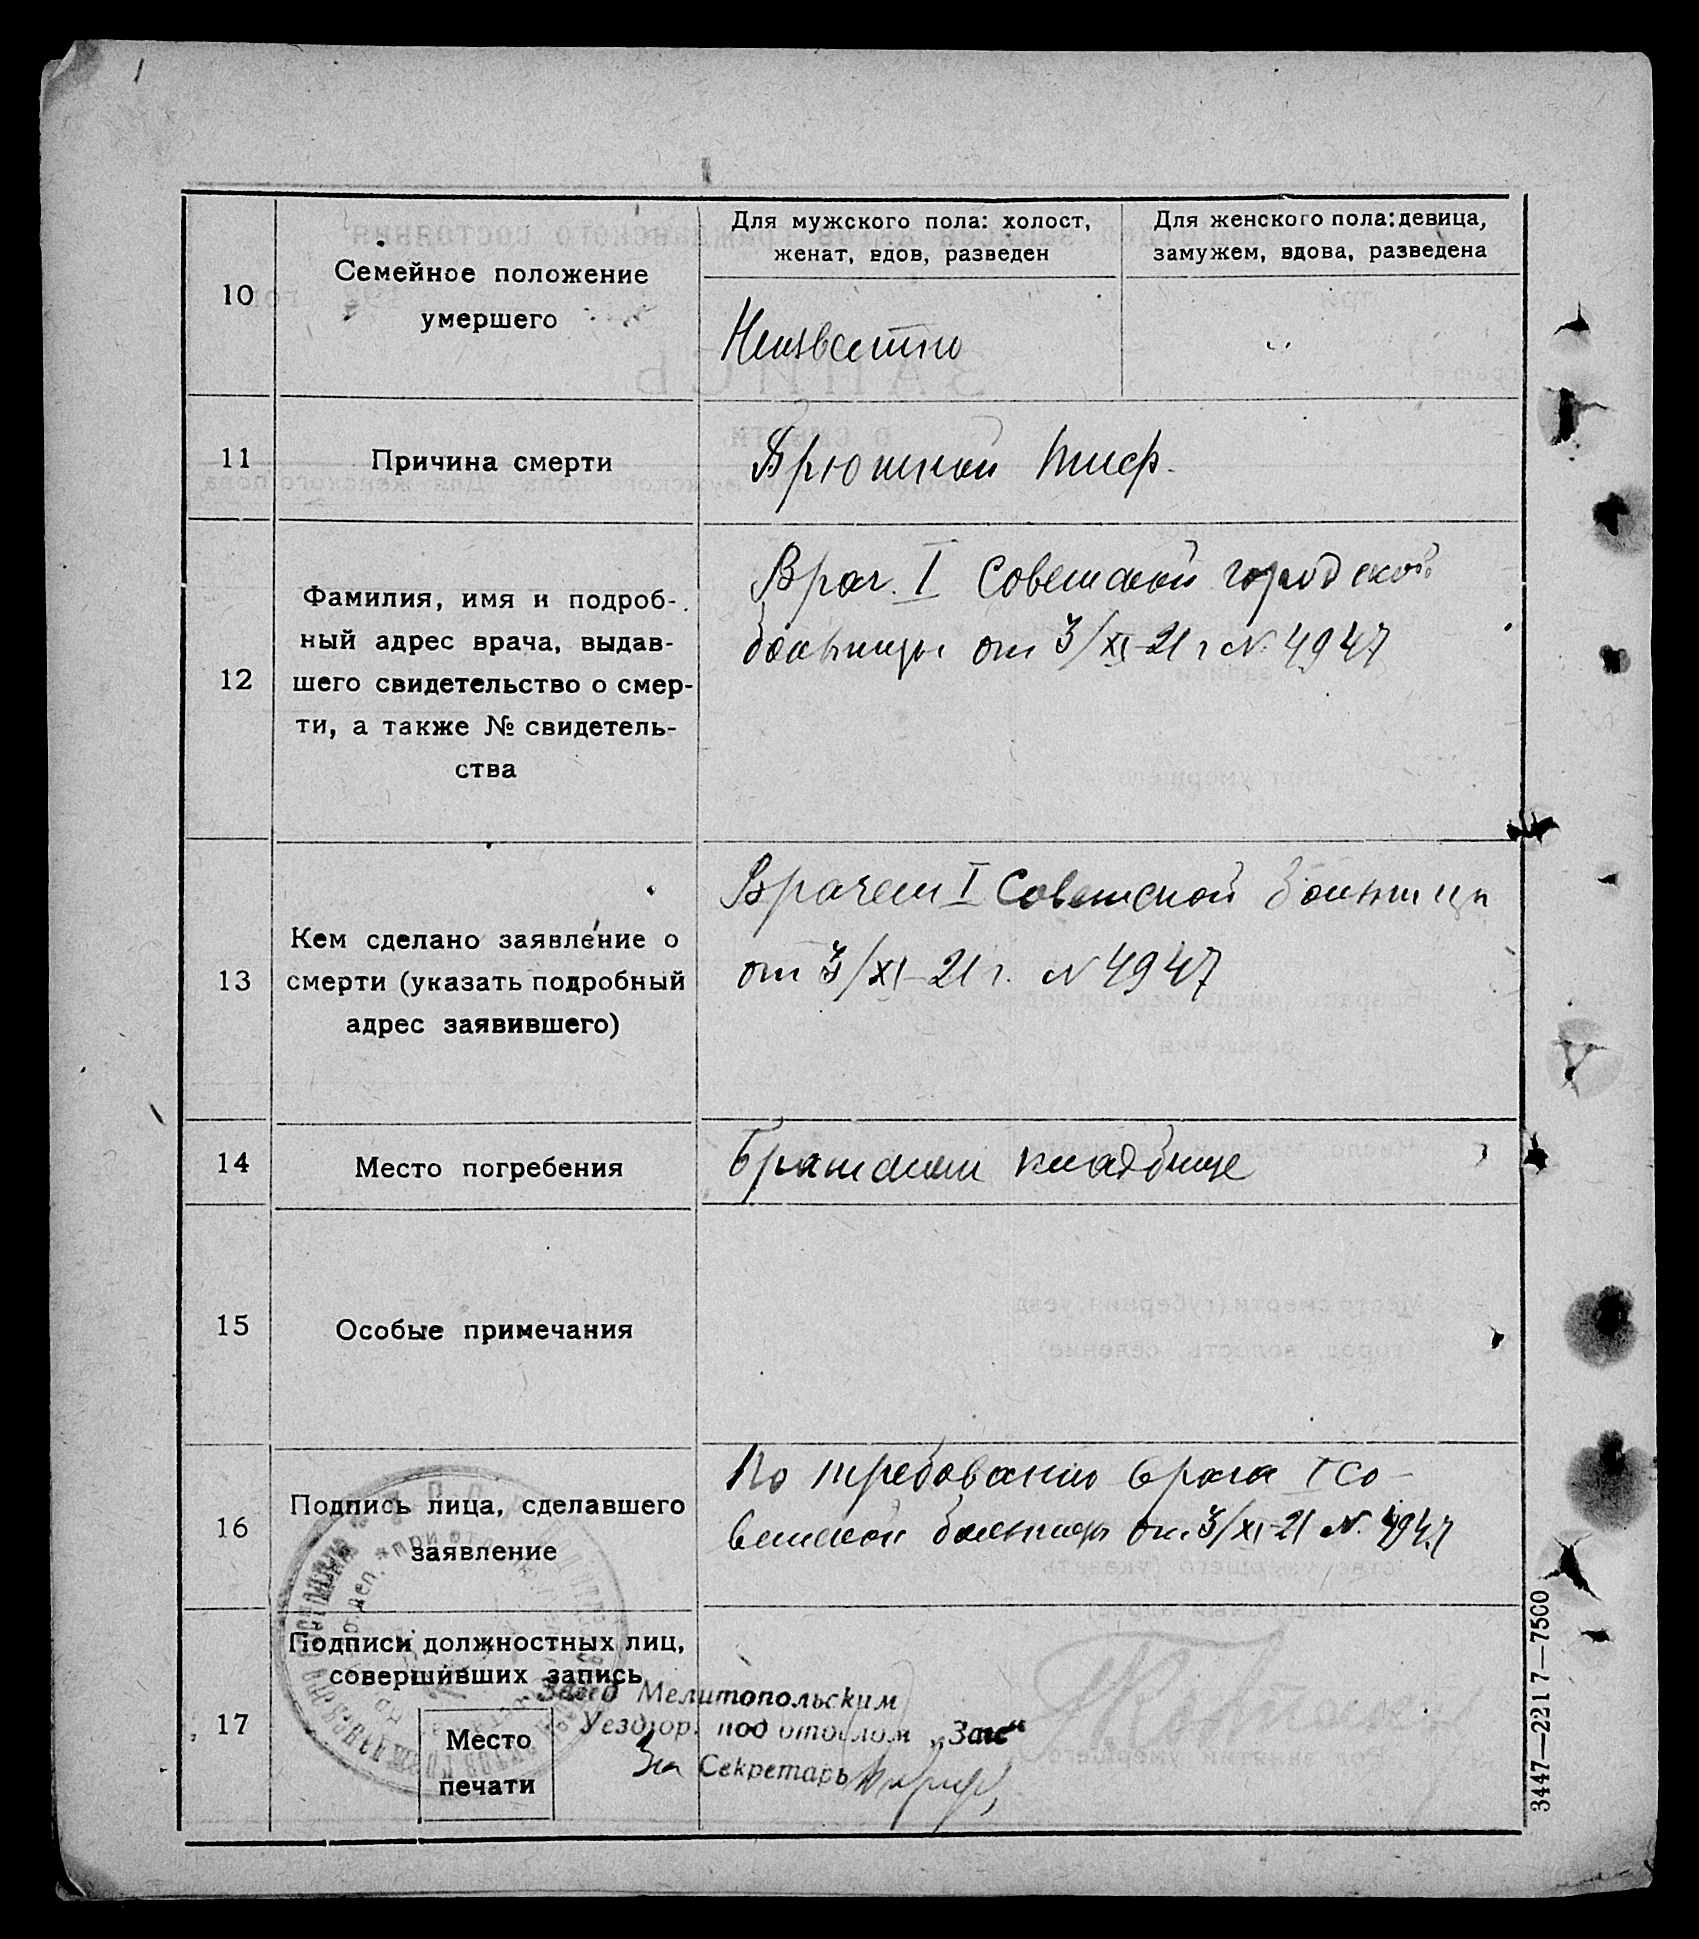 10
Семейное положение
умершего
Для мужского пола: холост,
женат, вдов, разведен
Для женского пола: девица,
замужем, вдова, разведена
Неизвестно
11
Причина смерти
Брюшной тиф.
12
Фамилия, имя и подроб-
ный адрес врача, выдав-
шего свидетельство о смер-
ти, а также № свидетель-
ства
Врач. I Советской городской
больницы от 3/XI-21 г N. 4947
13
Кем сделано заявление о
смерти (указать подробный
адрес заявившего)
Врачем I Советской больницы
от 3/XI-21 г. N 4947
14
Место погребения
Братском кладбище
15
Особые примечания
16
Подпись лица, сделавшего
заявление
По требованию врача I Со-
ветской больницы от 3/XI-21 N. 4947
17
Подписи должностных лиц,
совершивших запись
Место
печати
Мелитопольским
Уездгор. подотделом „Загс“
За Секретарь
3447—2217—7500